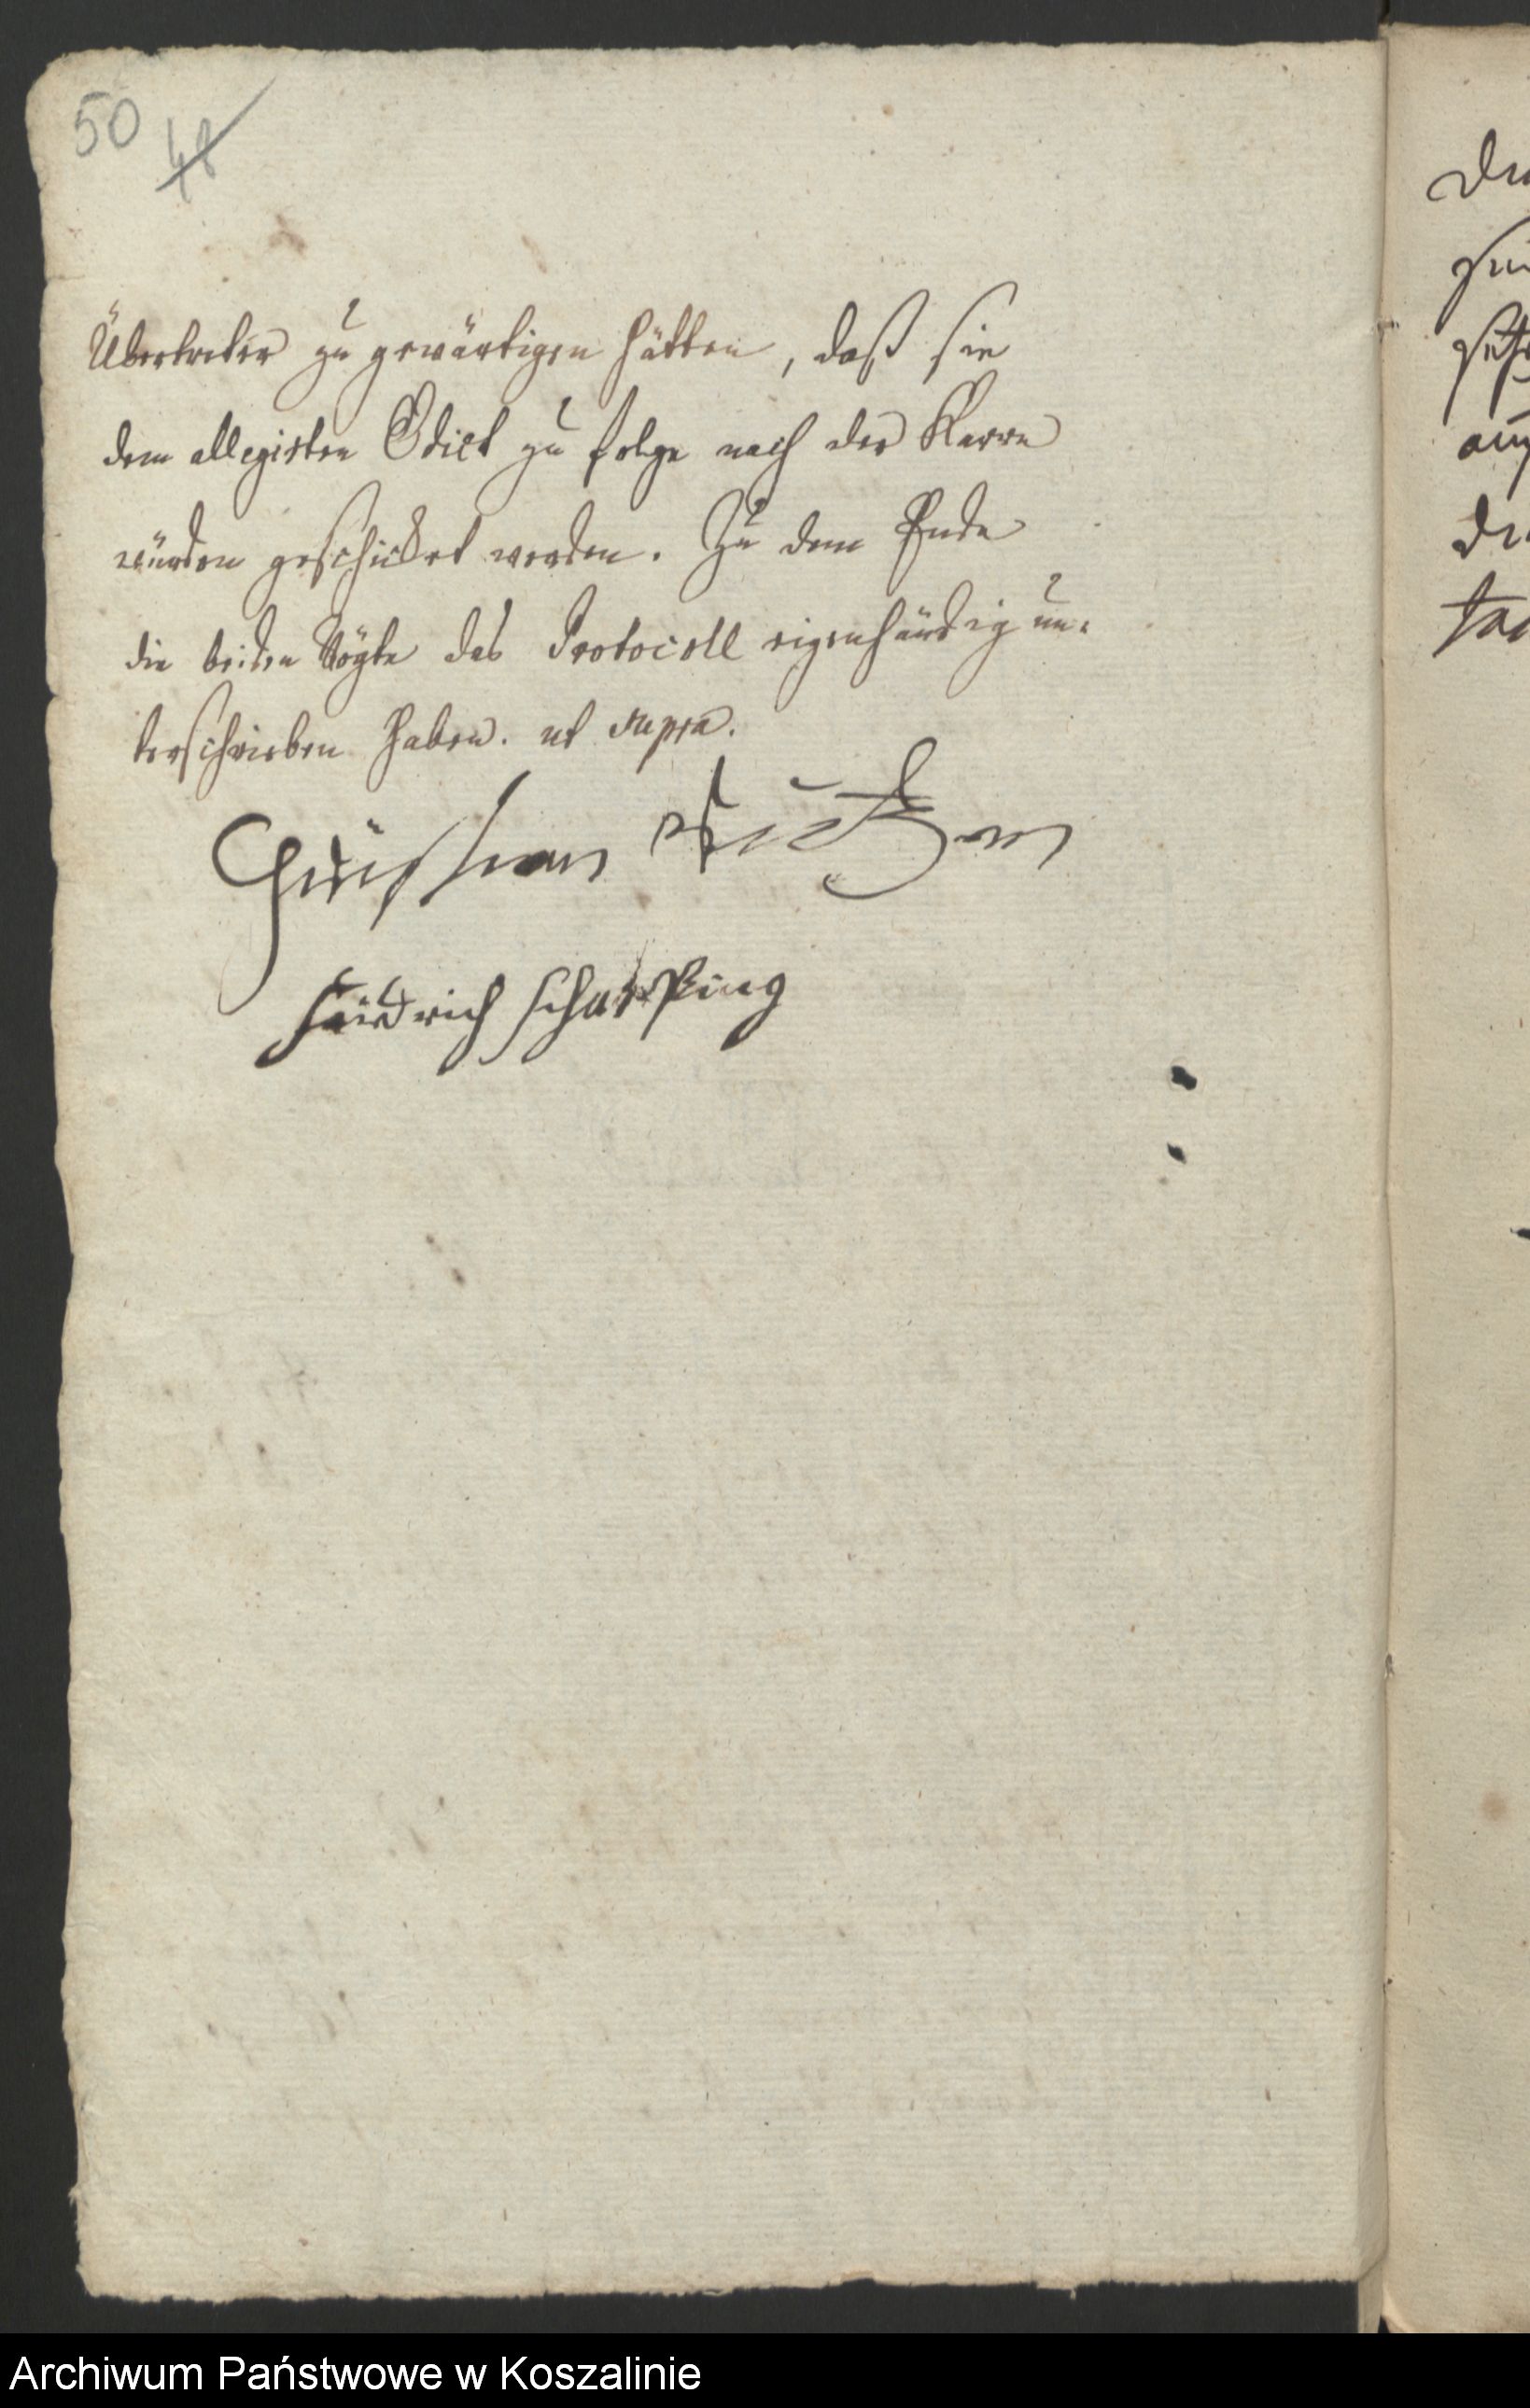 50
48
Übertreter zu gewärtigen hätten, daß sie
dem allegirten Edict zu folge nach der Karre
würden geschicket werden. Zu dem Ende
die beiden Vögte das Protocoll eigenhändig un-
terschrieben haben. ut supra.
Christian
Friedrich Scharping
Archiwum Państwowe w Koszalinie